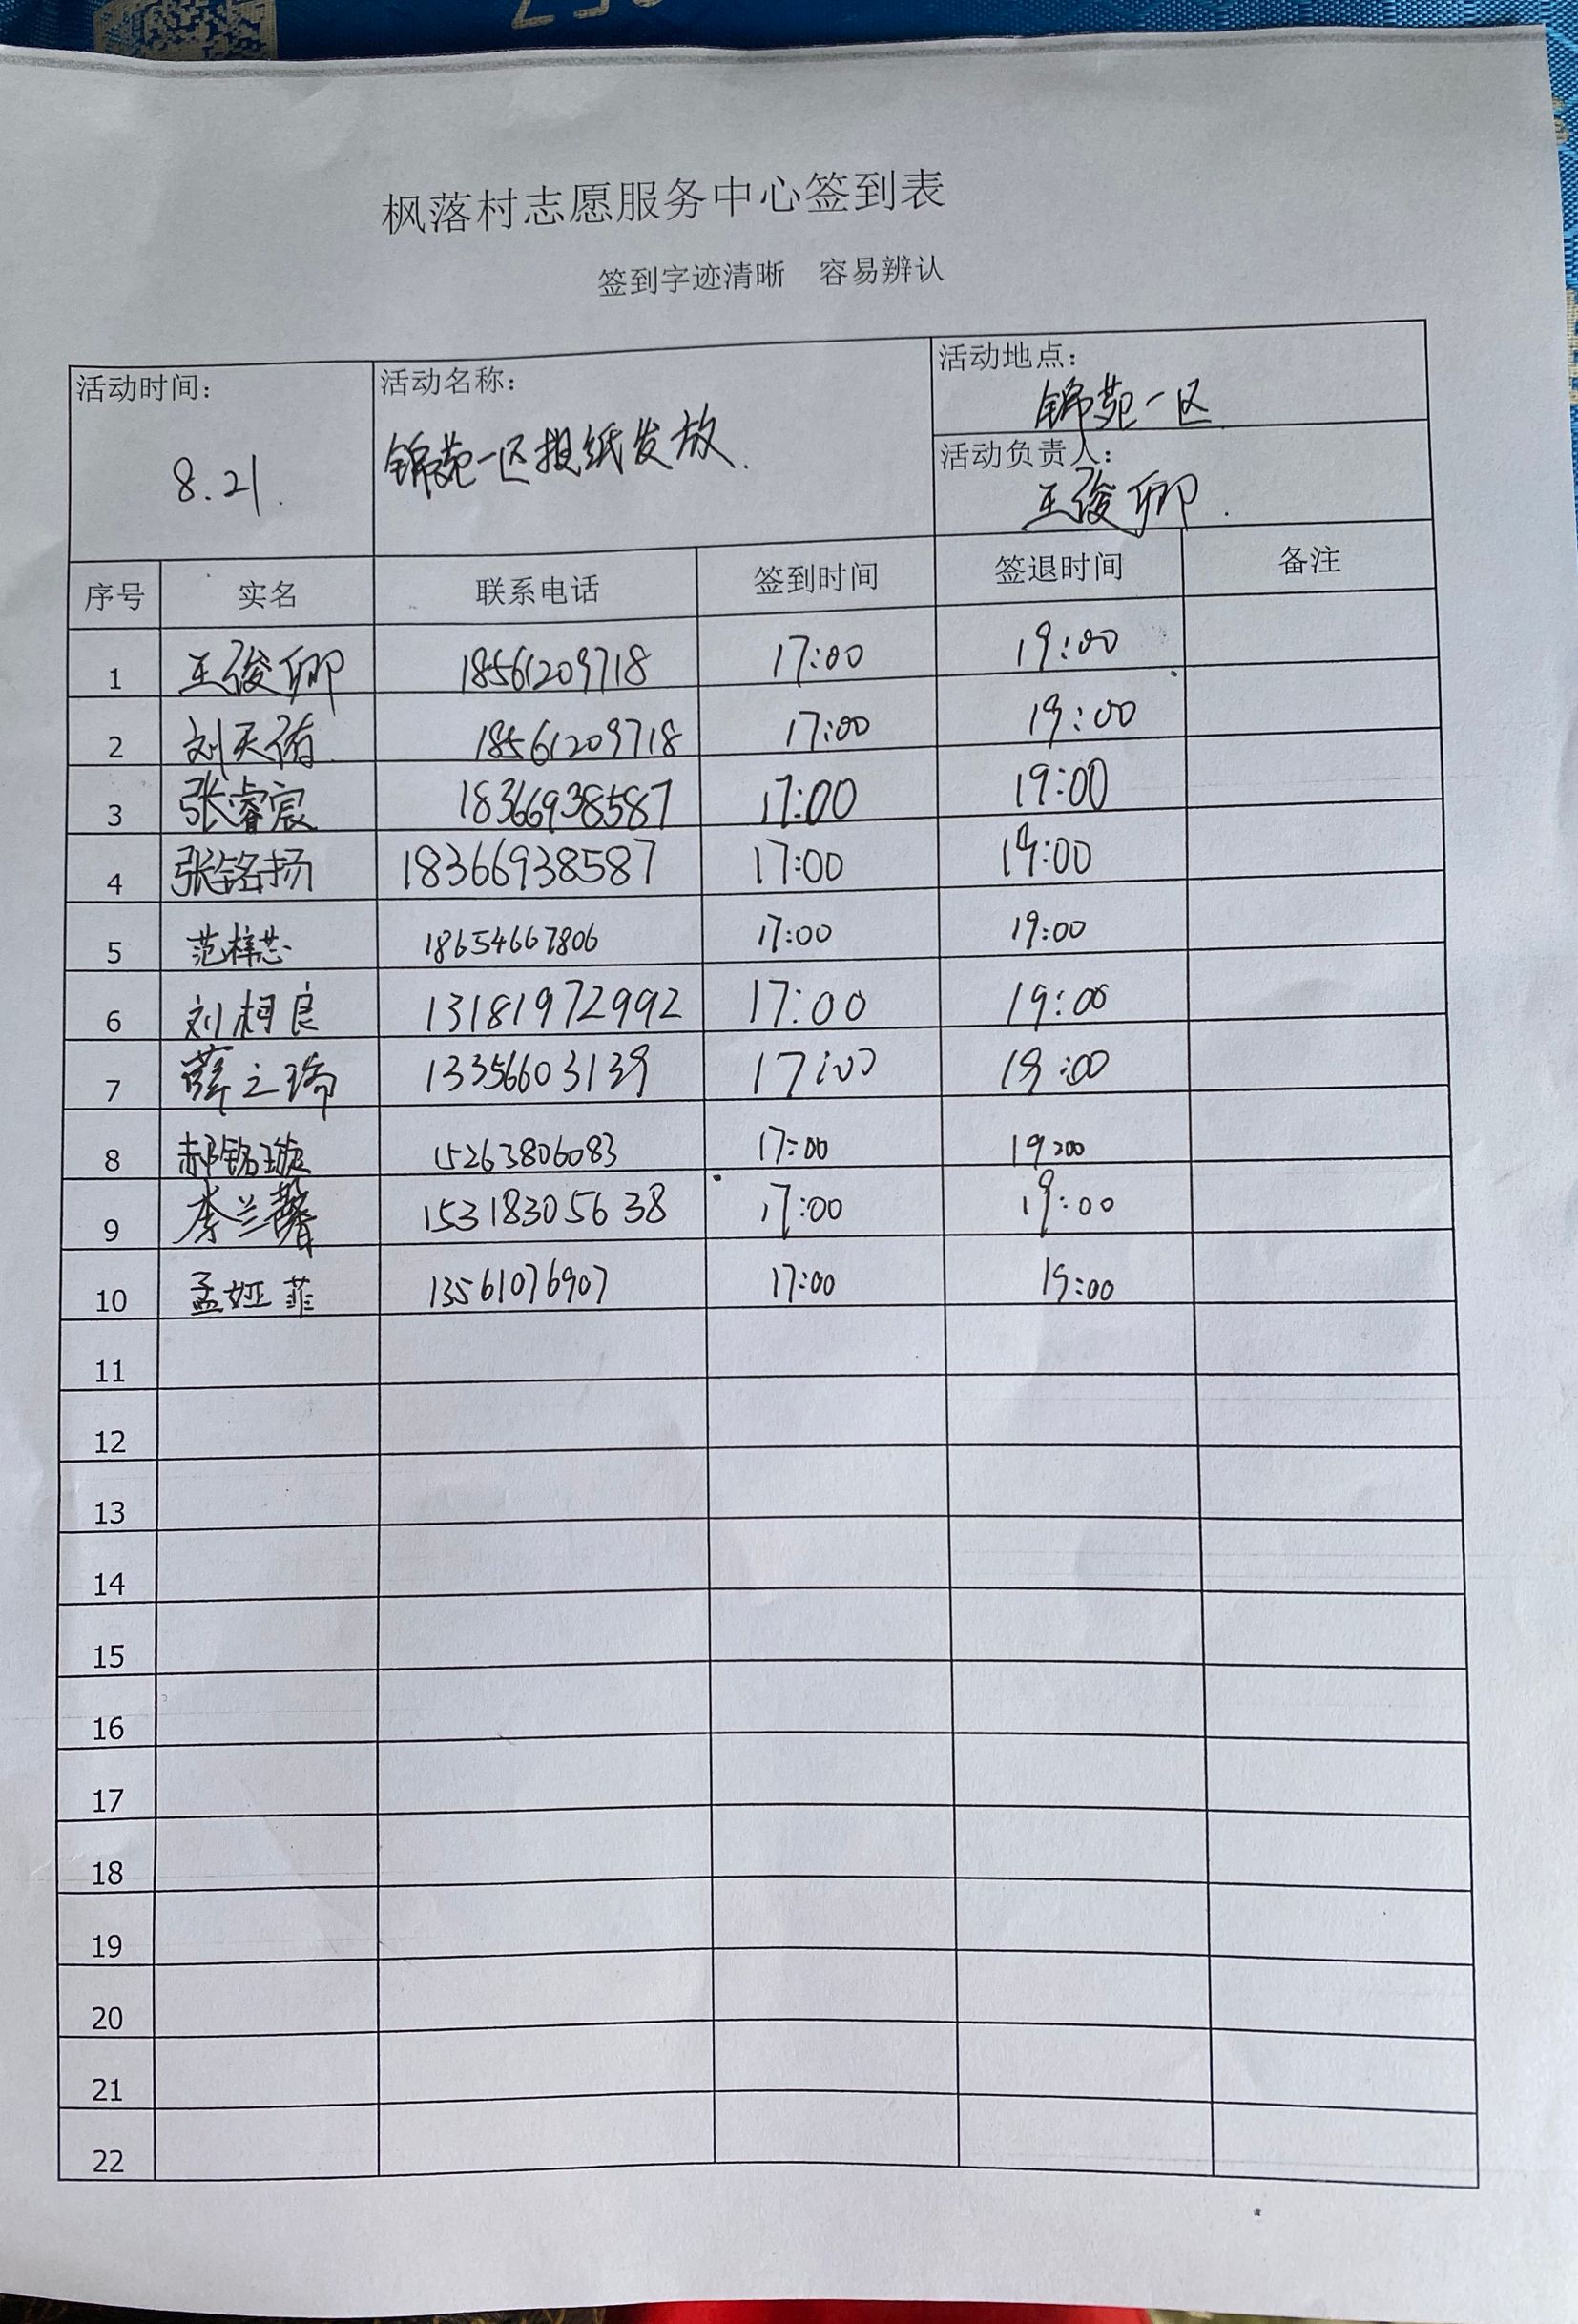 枫落村志愿服务中心签到表
签到字迹清晰 容易辨认
活动时间: 8.21.
活动名称: 锦苑一区报纸发放.
活动地点: 锦苑一区
活动负责人: 王俊卿.
序号 实名 联系电话 签到时间 签退时间 备注
1 王俊卿 18561209718 17:00 19:00
2 刘天佑 18561209718 17:00 19:00
3 张睿宸 18366938587 17:00 19:00
4 张铭扬 18366938587 17:00 19:00
5 范梓芯 18654667806 17:00 19:00
6 刘柯良 13181972992 17:00 19:00
7 薛之琦 13356603139 17:00 19:00
8 郝铭璇 15263806083 17:00 19:00
9 李兰馨 15318305638 17:00 19:00
10 孟娅菲 13561076907 17:00 19:00
11
12
13
14
15
16
17
18
19
20
21
22